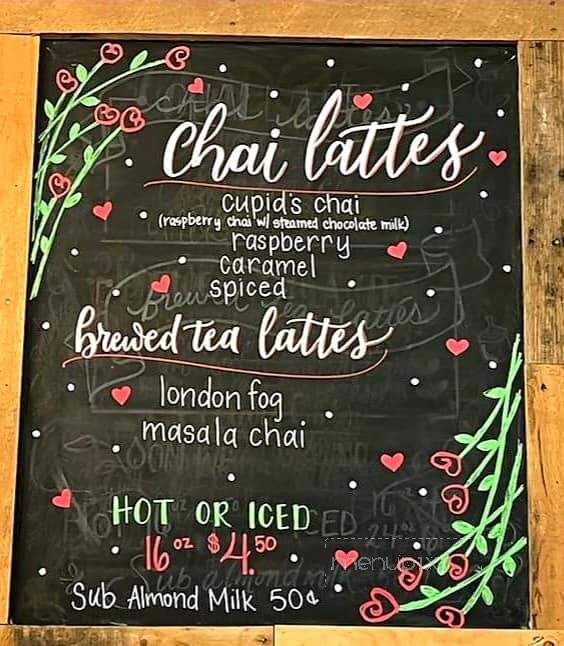 chai lattes
cupid's chai
(raspberry chai w/ steamed chocolate milk)
raspberry
caramel
spiced
brewed tea lattes
london fog
masala chai
HOT OR ICED
16 oz $4.50
Sub Almond Milk 50¢